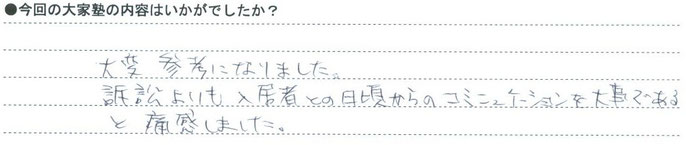 ●今回の大家塾の内容はいかがでしたか？
大変 参考になりました。
訴訟よりも入居者との日頃からのコミニュケーションを大事である
と痛感しました。